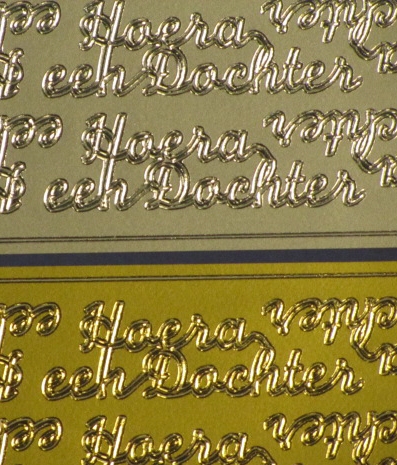 Hoera
een Dochter
Hoera
een Dochter
Hoera
een Dochter
Hoera